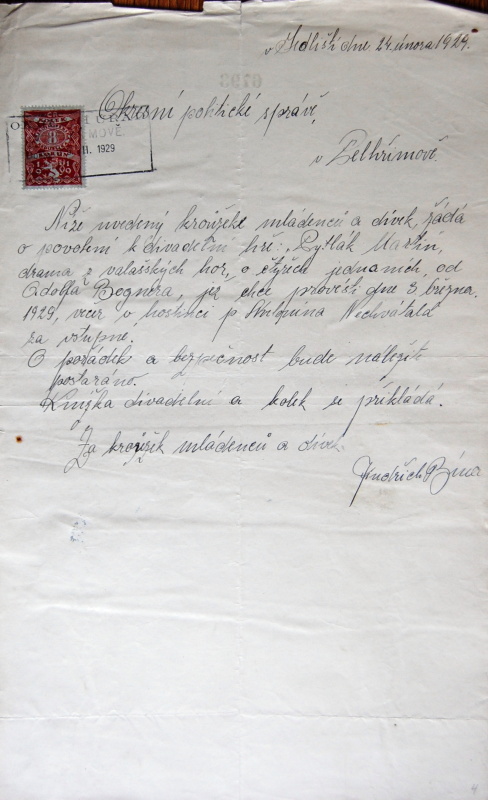 v Sedlišti dne 24. února 1929.
Okresní politické správě,
v Pelhřimově.
8
II. 1929
Níže uvedený kroužek mládenců a dívek, žádá
o povolení k divadelní hře: „Pytlák Martin,
drama z valašských hor, o čtyřech jednáních, od
Adolfa Bognera, jež chce provésti dne 3. března
1929, večer v hostinci p. Antonína Nechvátala
za vstupné.
O pořádek a bezpečnost bude náležitě
postaráno.
Knížka divadelní a kolek se přikládá.
Za kroužek mládenců a dívek.
Jindřich Bína
4